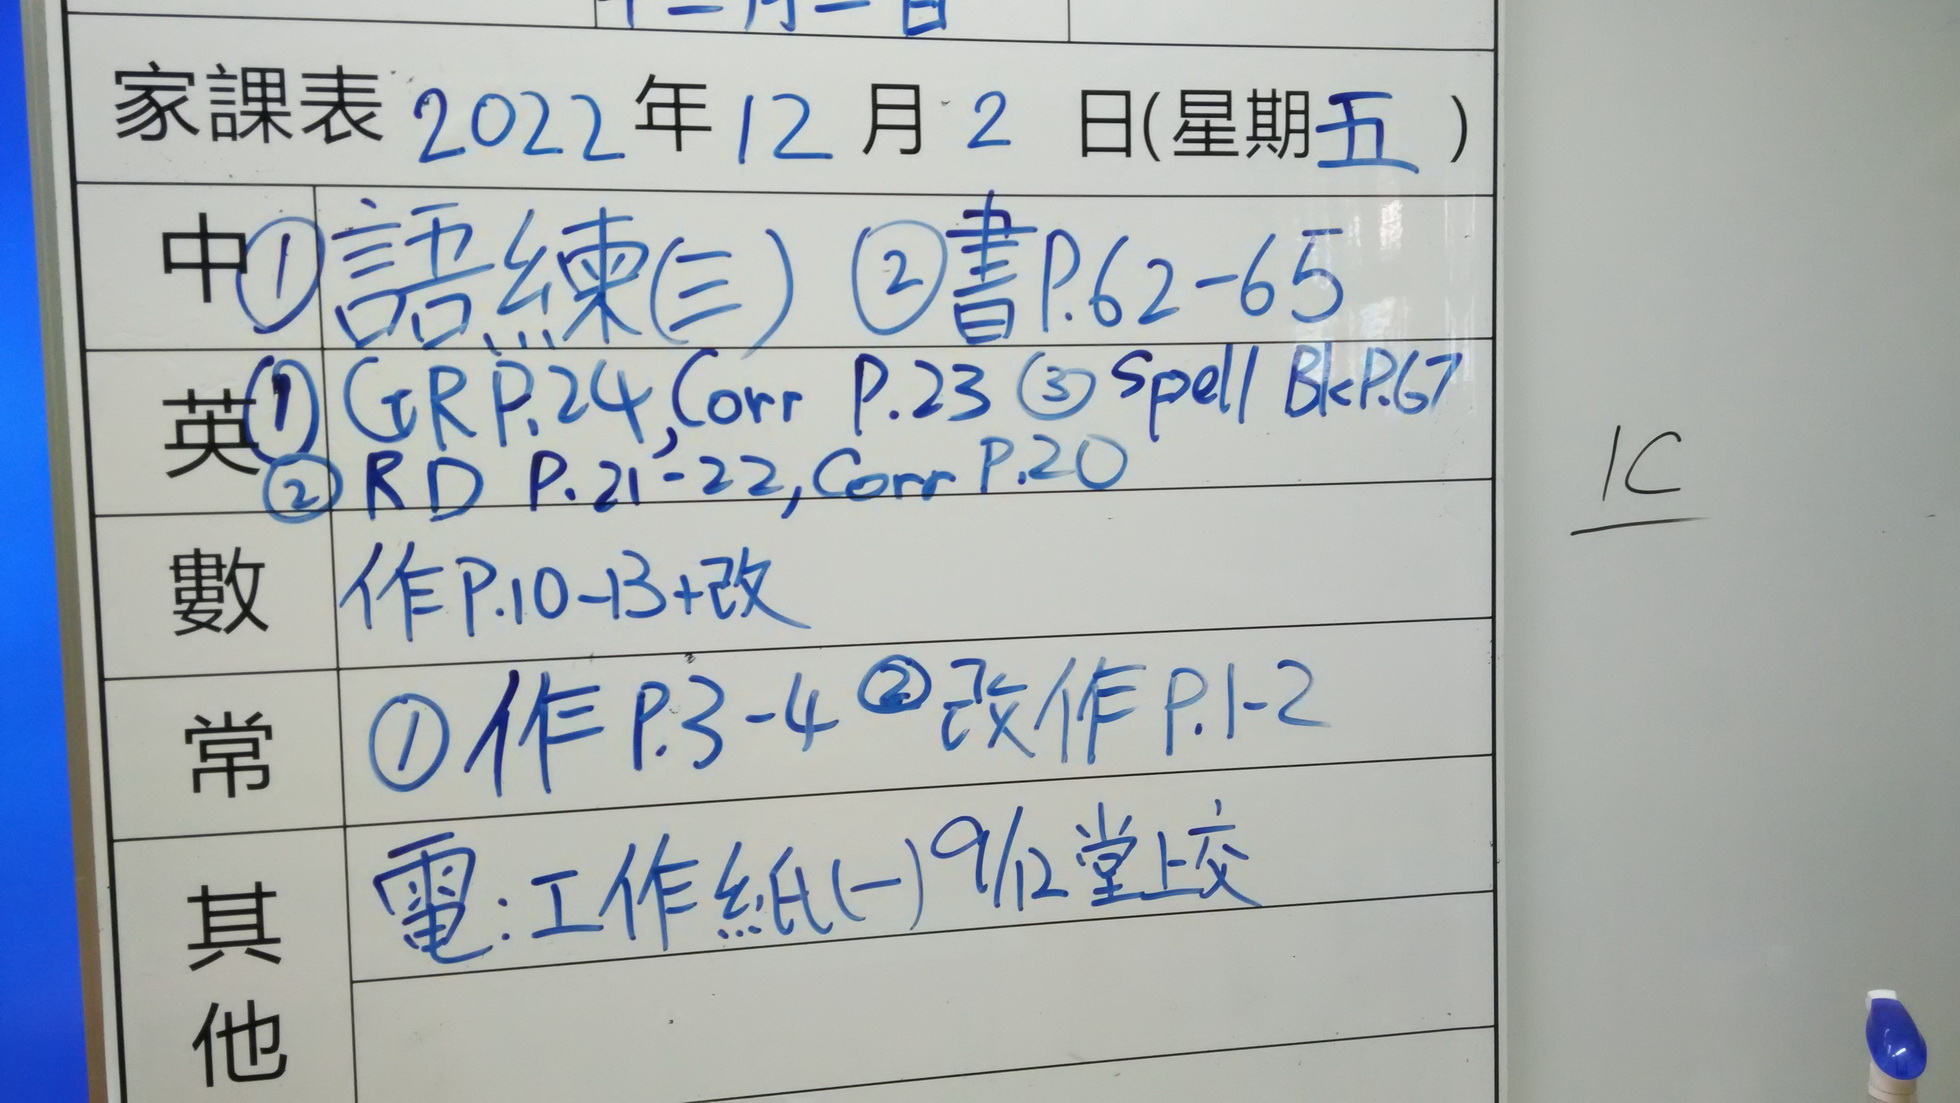 十二月一日
家課表 2022年12月2日(星期五)
中 ①語練(三) ②書P.62-65
英 ①GR P.24, Corr P.23 ③Spell Bk P.67
②RD P.21-22, Corr P.20
數 作P.10-13+改
1C
常 ①作P.3-4 ②改作P.1-2
其他 電:工作紙(一) 9/12堂上交